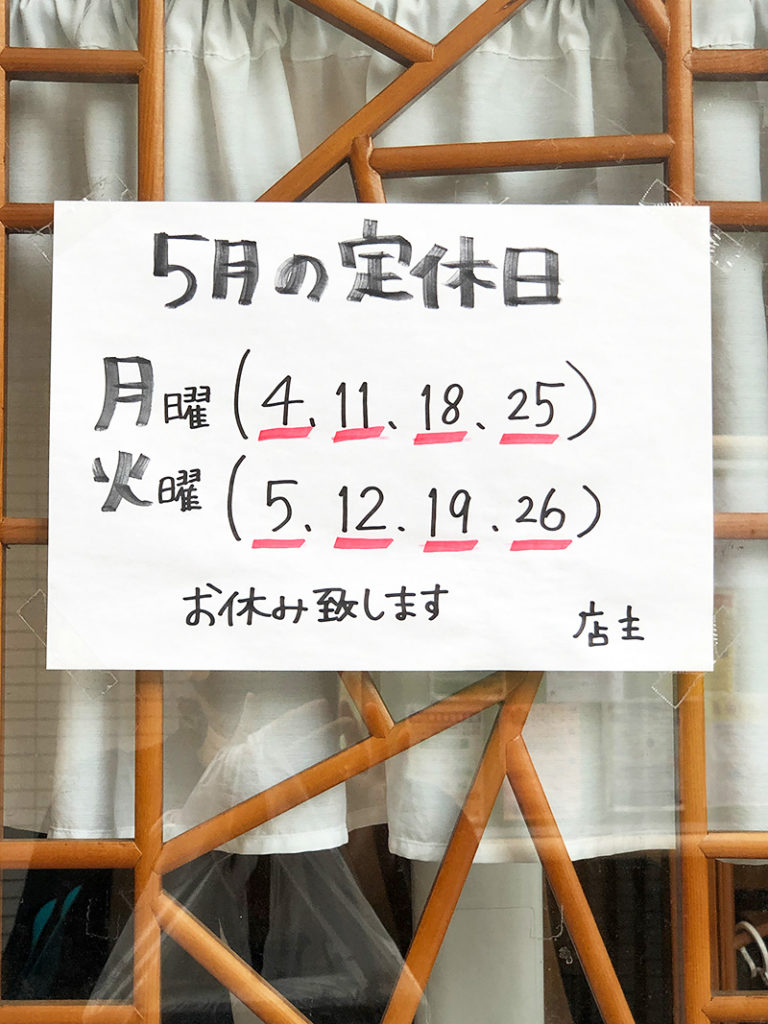 5月の定休日
月曜(4、11、18、25)
火曜(5、12、19、26)
お休み致します
店主